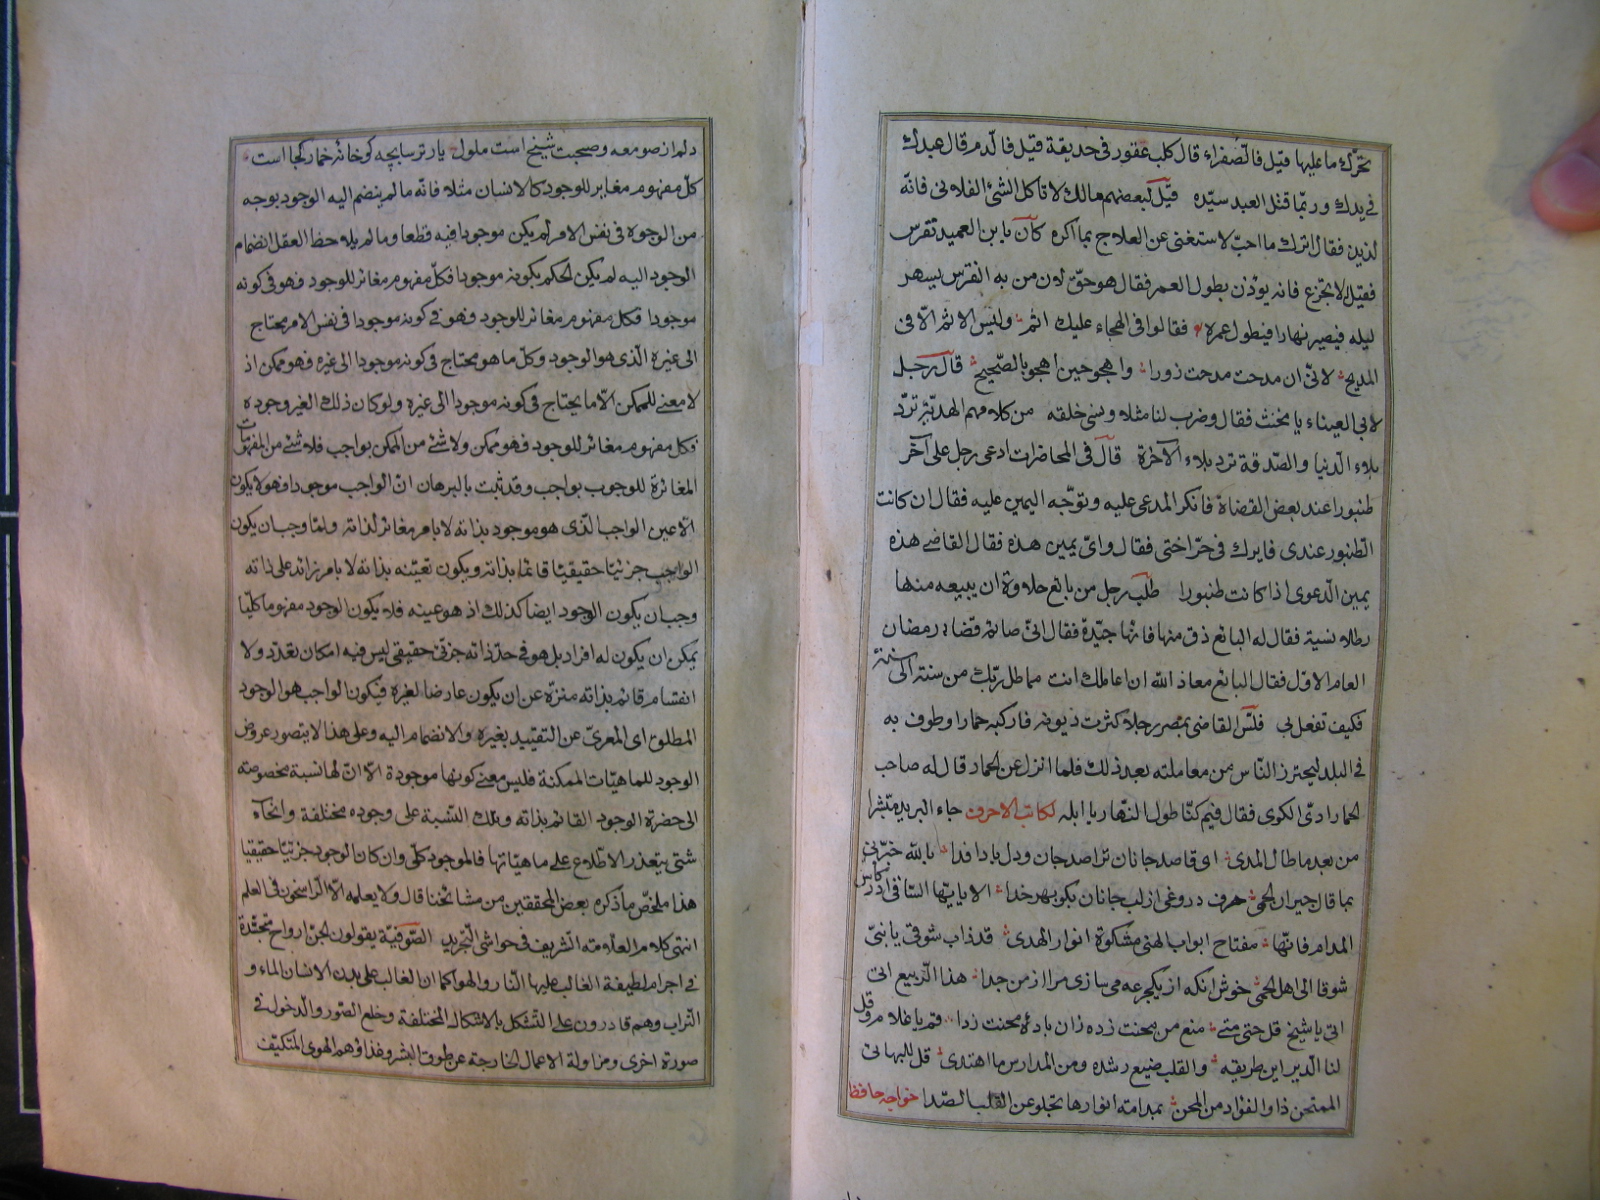 تحرّك ما عليها قيل فالصّفراء قال كلب عقور فى حديقة قيل فالدّم قال عبدك
فى يدك وربّما قتل العبد سيّده قيل لبعضهم مالك لا تأكل الشئ الفلانى فانّه
لذيذ فقال اترك ما احبّ لاستغنى عن العلاج بما اكره كان بابن العميد نقرس
فقيل لا تجزع فانه يؤذن بطول العمر فقال هو حقّ لان من به النقرس يسهر
ليله فيصير نهارا فيطول عمره فقالوا فى الهجاء عليك اثم وليس الاثم الّا فى
المديح لانّى ان مدحت مدحت زورا واهجو حين اهجو بالصّحيح قال رجل
لابى العيناء يا مخنث فقال وضرب لنا مثلا ونسى خلقه من كلامهم الهديّة تردّ
بلاء الدّنيا والصّدقة ترد بلاء الآخرة قال فى المحاضرات ادعى رجل على آخر
طنبورا عند بعض القضاة فانكر المدعى عليه وتوجّه اليمين عليه فقال ان كانت
الطنبور عندى فايرك فى حرّ اختى فقال واىّ يمين هذه فقال القاضى هذه
يمين الدّعوى اذا كانت طنبورا طلب رجل من بائع حلاوة ان يبيعه منها
رطلا بنسية فقال له البائع ذق منها فانها جيّدة فقال انّى صائم قضاء رمضان
العام الاوّل فقال البائع معاذ الله ان اعاملك انت مماطل ربّك من سنة الى سنة
فكيف تفعل بى فلّس القاضى بمصر رجلا كثرت ديونه فاركبه حمارا وطوف به
فى البلد ليحترز النّاس من معاملته بعد ذلك فلما انزل عن الحمار قال له صاحب
الحمار ادّى الكرى فقال فيم كنّا طول النهار يا ابله لكاتب الاحرف جاء البريد مبشرا
من بعد ما طال المدى اى قاصد جانان ترا صد جان ودل بادا فدا بالله خبّرنى
بما قال جيران الحمى حرف دروغى از لب جانان بكو بهر خدا الا يا ايّها السّاقى ادر كاس
المدام فانّها مفتاح ابواب النهى مشكوة انوار الهدى قد ذاب شوقى يا بنىّ
شوقا الى اهل الحمى خوش انكه از يكجرعه مى سازى مرا از من جدا هذا الربيع اتى
اتى يا شيخ قل حتى متى منع من محنت زده زان باده محنت زدا قم يا غلام وقل
لنا الدّير اين طريقه والقلب ضيع رشده ومن المدارس ما اهتدى قل للبهائى
الممتحن داو الفؤاد من المحن بمدامة انوارها تجلو عن القلب الصّدا خواجه حافظ
دلم از صومعه وصحبت شيخ است ملول يار ترسابچه كو خانه خمار كجا است
كلّ مفهوم مغاير للوجود كالانسان مثلا فانّه ما لم ينضم اليه الوجود بوجه
من الوجوه فى نفس الامر لم يكن موجودا فيه قطعا وما لم يلاحظ العقل انضمام
الوجود اليه لم يكن الحكم بكونه موجودا فكلّ مفهوم مغائر للوجود فهو فى كونه
موجودا فكل مفهوم مغائر للوجود فهو فى كونه موجودا فى نفس الامر يحتاج
الى غيره الّذى هو الوجود وكلّ ما هو محتاج فى كونه موجودا الى غيره فهو ممكن اذ
لا معنى للممكن الّا ما يحتاج فى كونه موجودا الى غيره ولو كان ذلك الغير وجوده
فكل مفهوم مغائر للوجود فهو ممكن ولا شئ من الممكن بواجب فلا شئ من المفهومات
المغائرة للوجوب بواجب وقد ثبت بالبرهان انّ الواجب موجود فهو لا يكون
الّا عين الواجب الّذى هو موجود بذاته لا بامر مغائر لذاته ولمّا وجب ان يكون
الواجب جزئيّا حقيقيّا قائما بذاته ويكون تعيّنه بذاته لا بامر زائد على ذاته
وجب ان يكون الوجود ايضا كذلك اذ هو عينه فلا يكون الوجود مفهوما كلّيّا
يمكن ان يكون له افراد بل هو فى حدّ ذاته جزئى حقيقى ليس فيه امكان تعدّد ولا
انقسام قائم بذاته منزّه عن ان يكون عارضا لغيره فيكون الواجب هو الوجود
المطلق اى المعرىّ عن التقييد بغيره والانضمام اليه وعلى هذا لا يتصور عروض
الوجود للماهيّات الممكنة فليس معنى كونها موجودة الّا انّ لها نسبة مخصوصة
الى حضرة الوجود القائم بذاته وتلك النّسبة على وجوه مختلفة وانحاء
شتى يتعذر الاطّلاع على ماهيّاتها فالموجود كلّى وان كان الوجود جزئيّا حقيقيا
هذا ملخّص ما ذكره بعض المحققين من مشائخنا قال ولا يعلمه الّا الرّاسخون فى العلم
انتهى كلام العلّامة الشّريف فى حواشى التّجريد الصّوفيّة يقولون الجنّ ارواح متجسّدة
فى اجرام لطيفة الغالب عليها النّار والهوا كما ان الغالب على بدن الانسان الماء و
التّراب وهم قادرون على التّشكّل بالاشكال المختلفة وخلع الصّور والدّخول فى
صورة اخرى ومزاولة الاعمال الخارجة عن طوق البشر وغذاؤهم الهوى المتكيّف